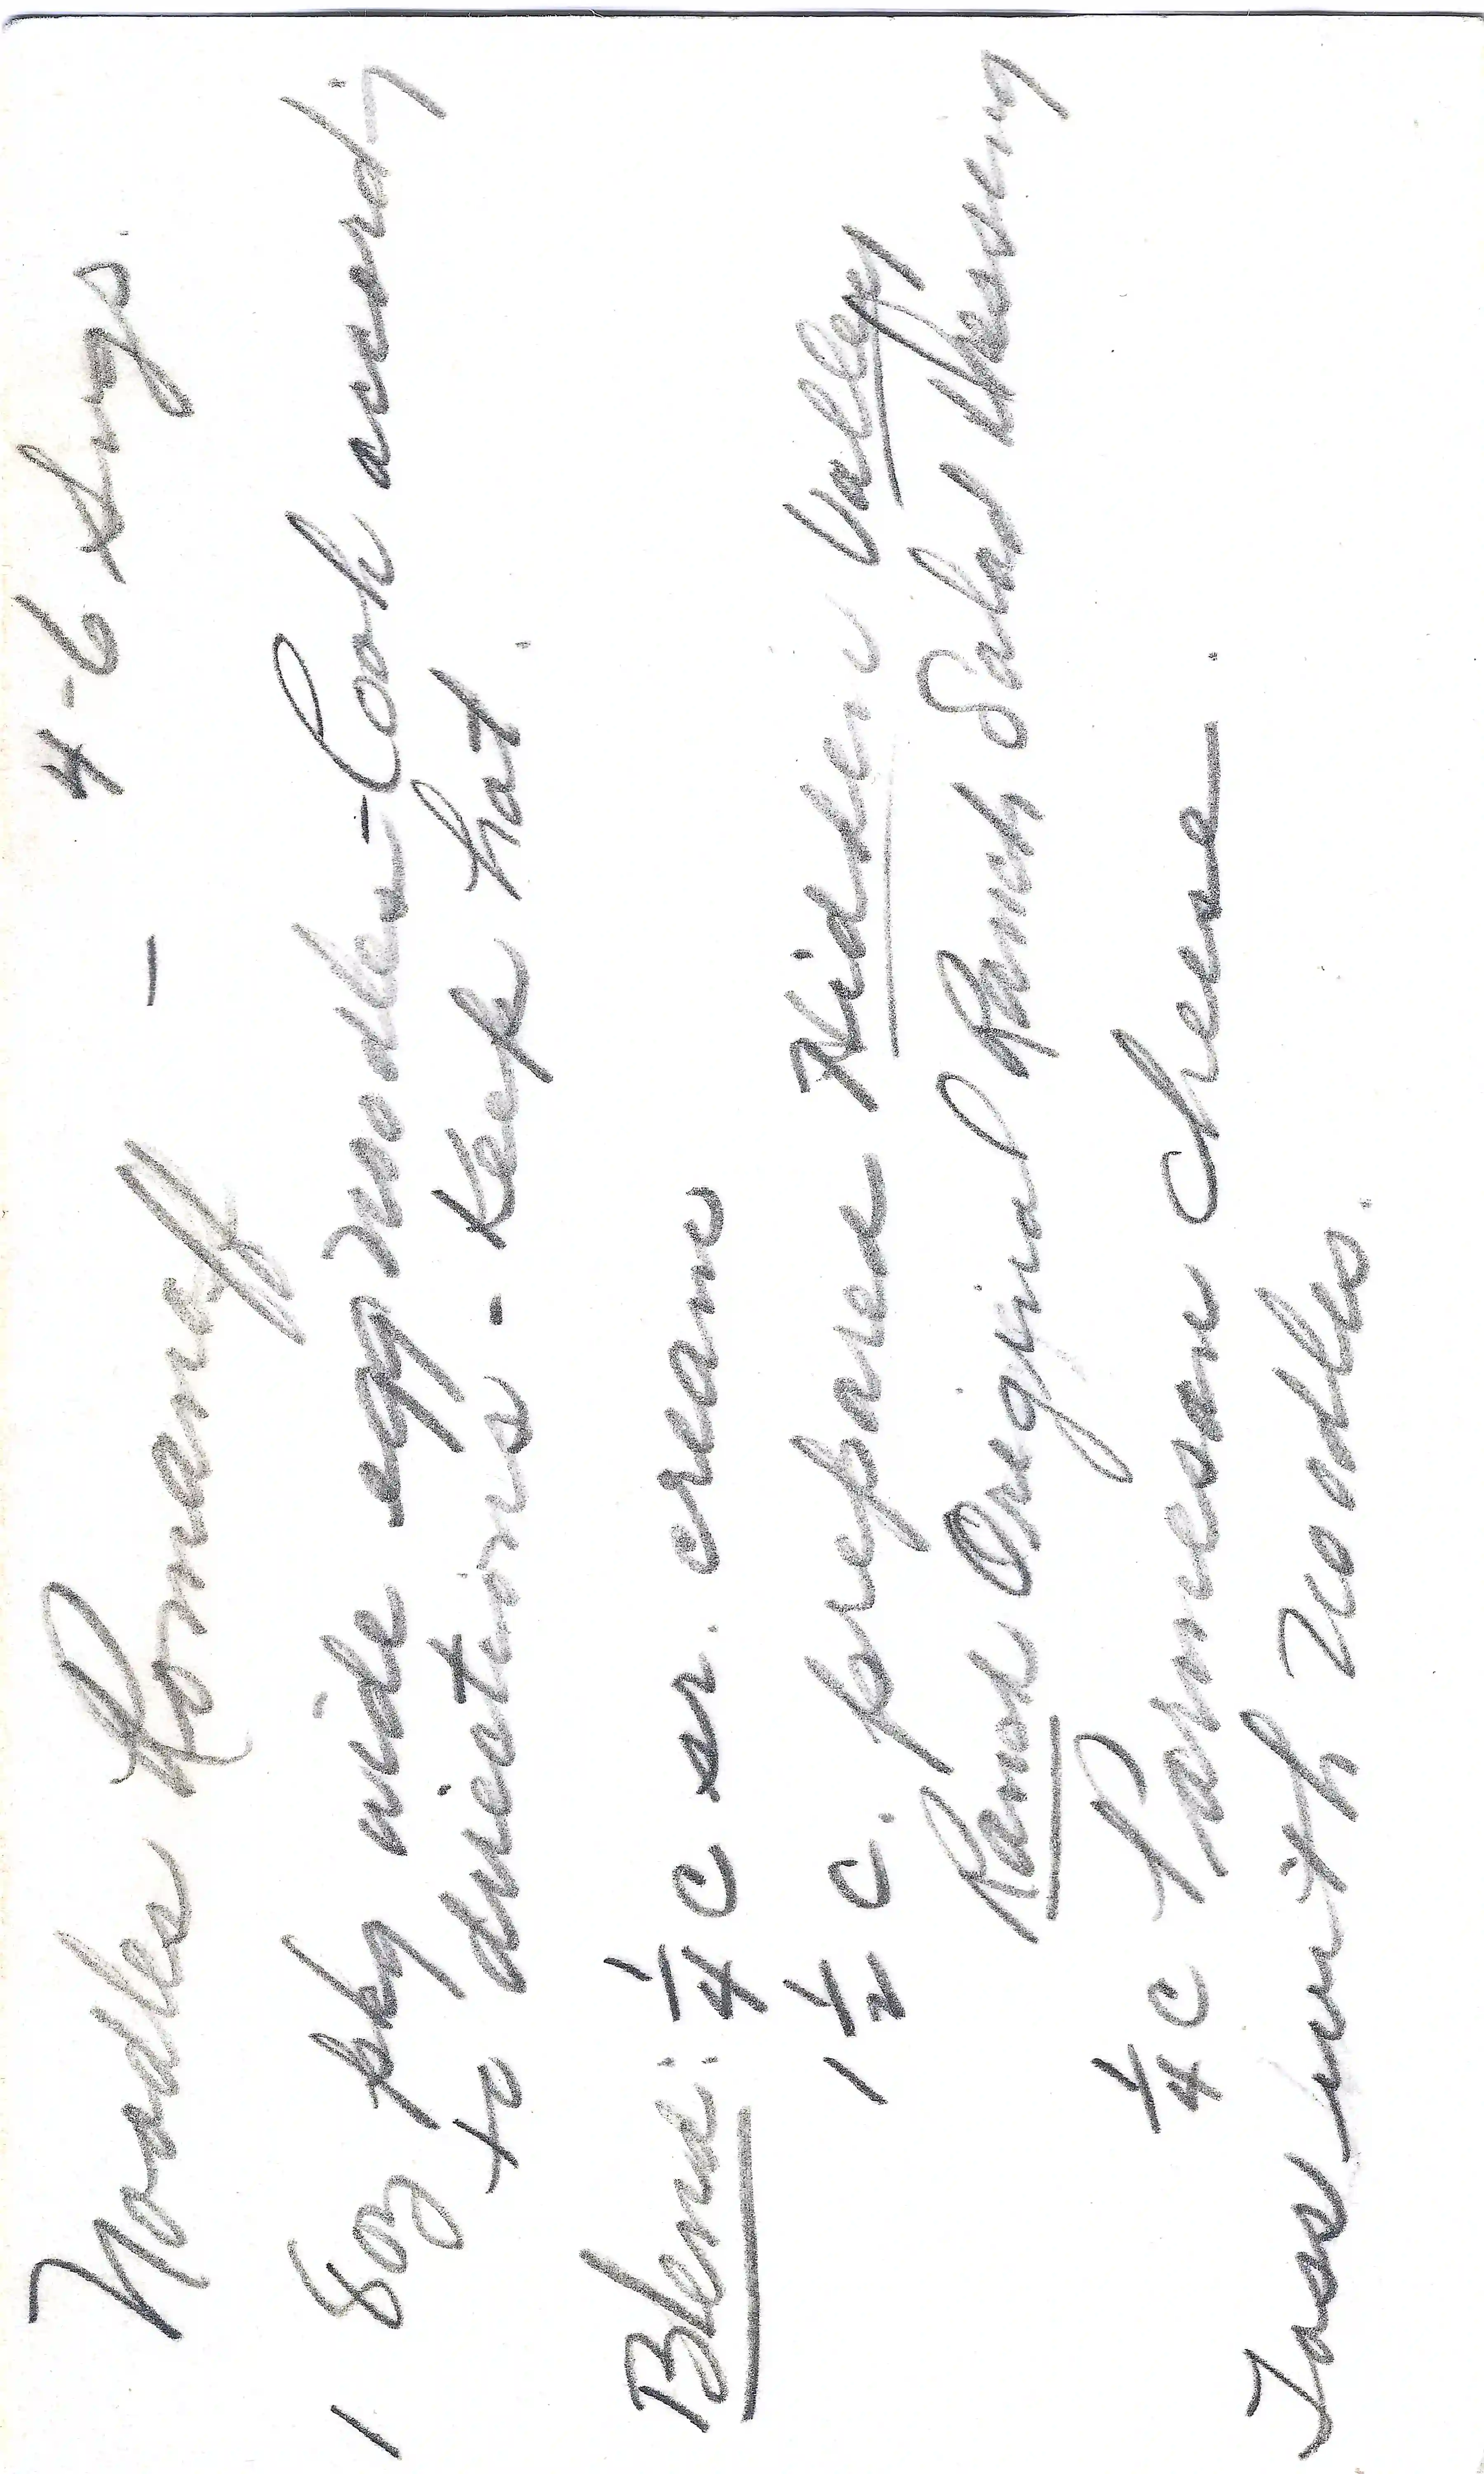 Noodles Romanoff - 4-6 Svgs.
1 8oz pkg wide egg noodles - Cook accordg
to directions - Keep hot.
Blend: 1/4 c sr. cream
1 1/2 c. prepared Hidden Valley
Ranch Original Ranch Salad Dressing
1/4 c Parmesan cheese.
Toss with noodles.